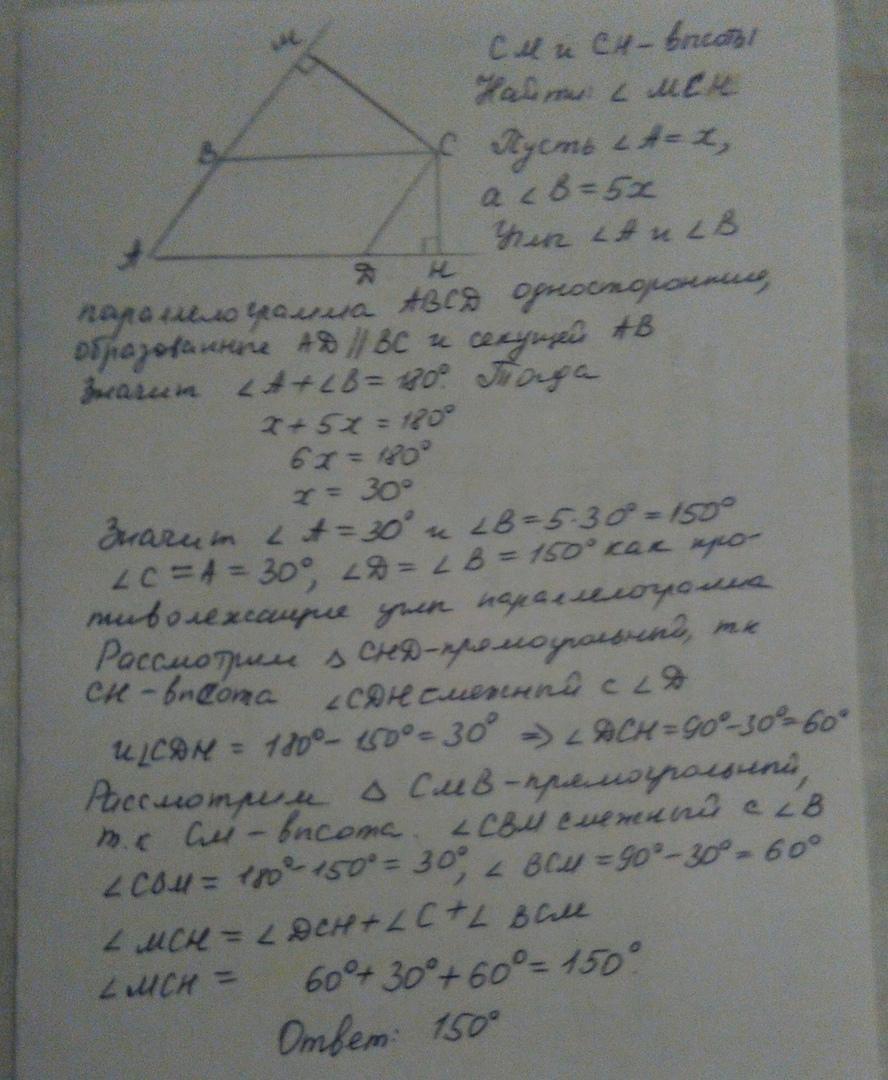 M
B
C
A
D
H
СМ и СН – высоты
Найти: ∠ МСН
Пусть ∠A = x,
а ∠B = 5x
Углы ∠A и ∠B
параллелограмма ABCD односторонние,
образованные AD || BC и секущей AB
Значит ∠A + ∠B = 180°. Тогда
x + 5x = 180°
6x = 180°
x = 30°
Значит ∠A = 30° и ∠B = 5·30° = 150°
∠C = A = 30°, ∠D = ∠B = 150° как про-
тиволежащие углы параллелограмма
Рассмотрим △ CHD – прямоугольный, тк
CH – высота ∠CDH смежный с ∠D
и ∠CDH = 180° – 150° = 30° ⇒ ∠DCH = 90° – 30° = 60°
Рассмотрим △ CMB – прямоугольный,
т.к CM – высота. ∠CBM смежный с ∠B
∠CBM = 180° – 150° = 30°, ∠BCM = 90° – 30° = 60°
∠MCH = ∠DCH + ∠C + ∠BCM
∠MCH = 60° + 30° + 60° = 150°.
Ответ: 150°